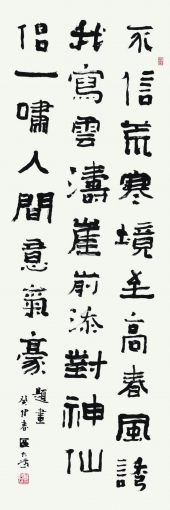 不信荒寒境至高春風誘
我寫雲濤崖前添對神仙
侶一嘯人間意氣豪
題畫
春區大為